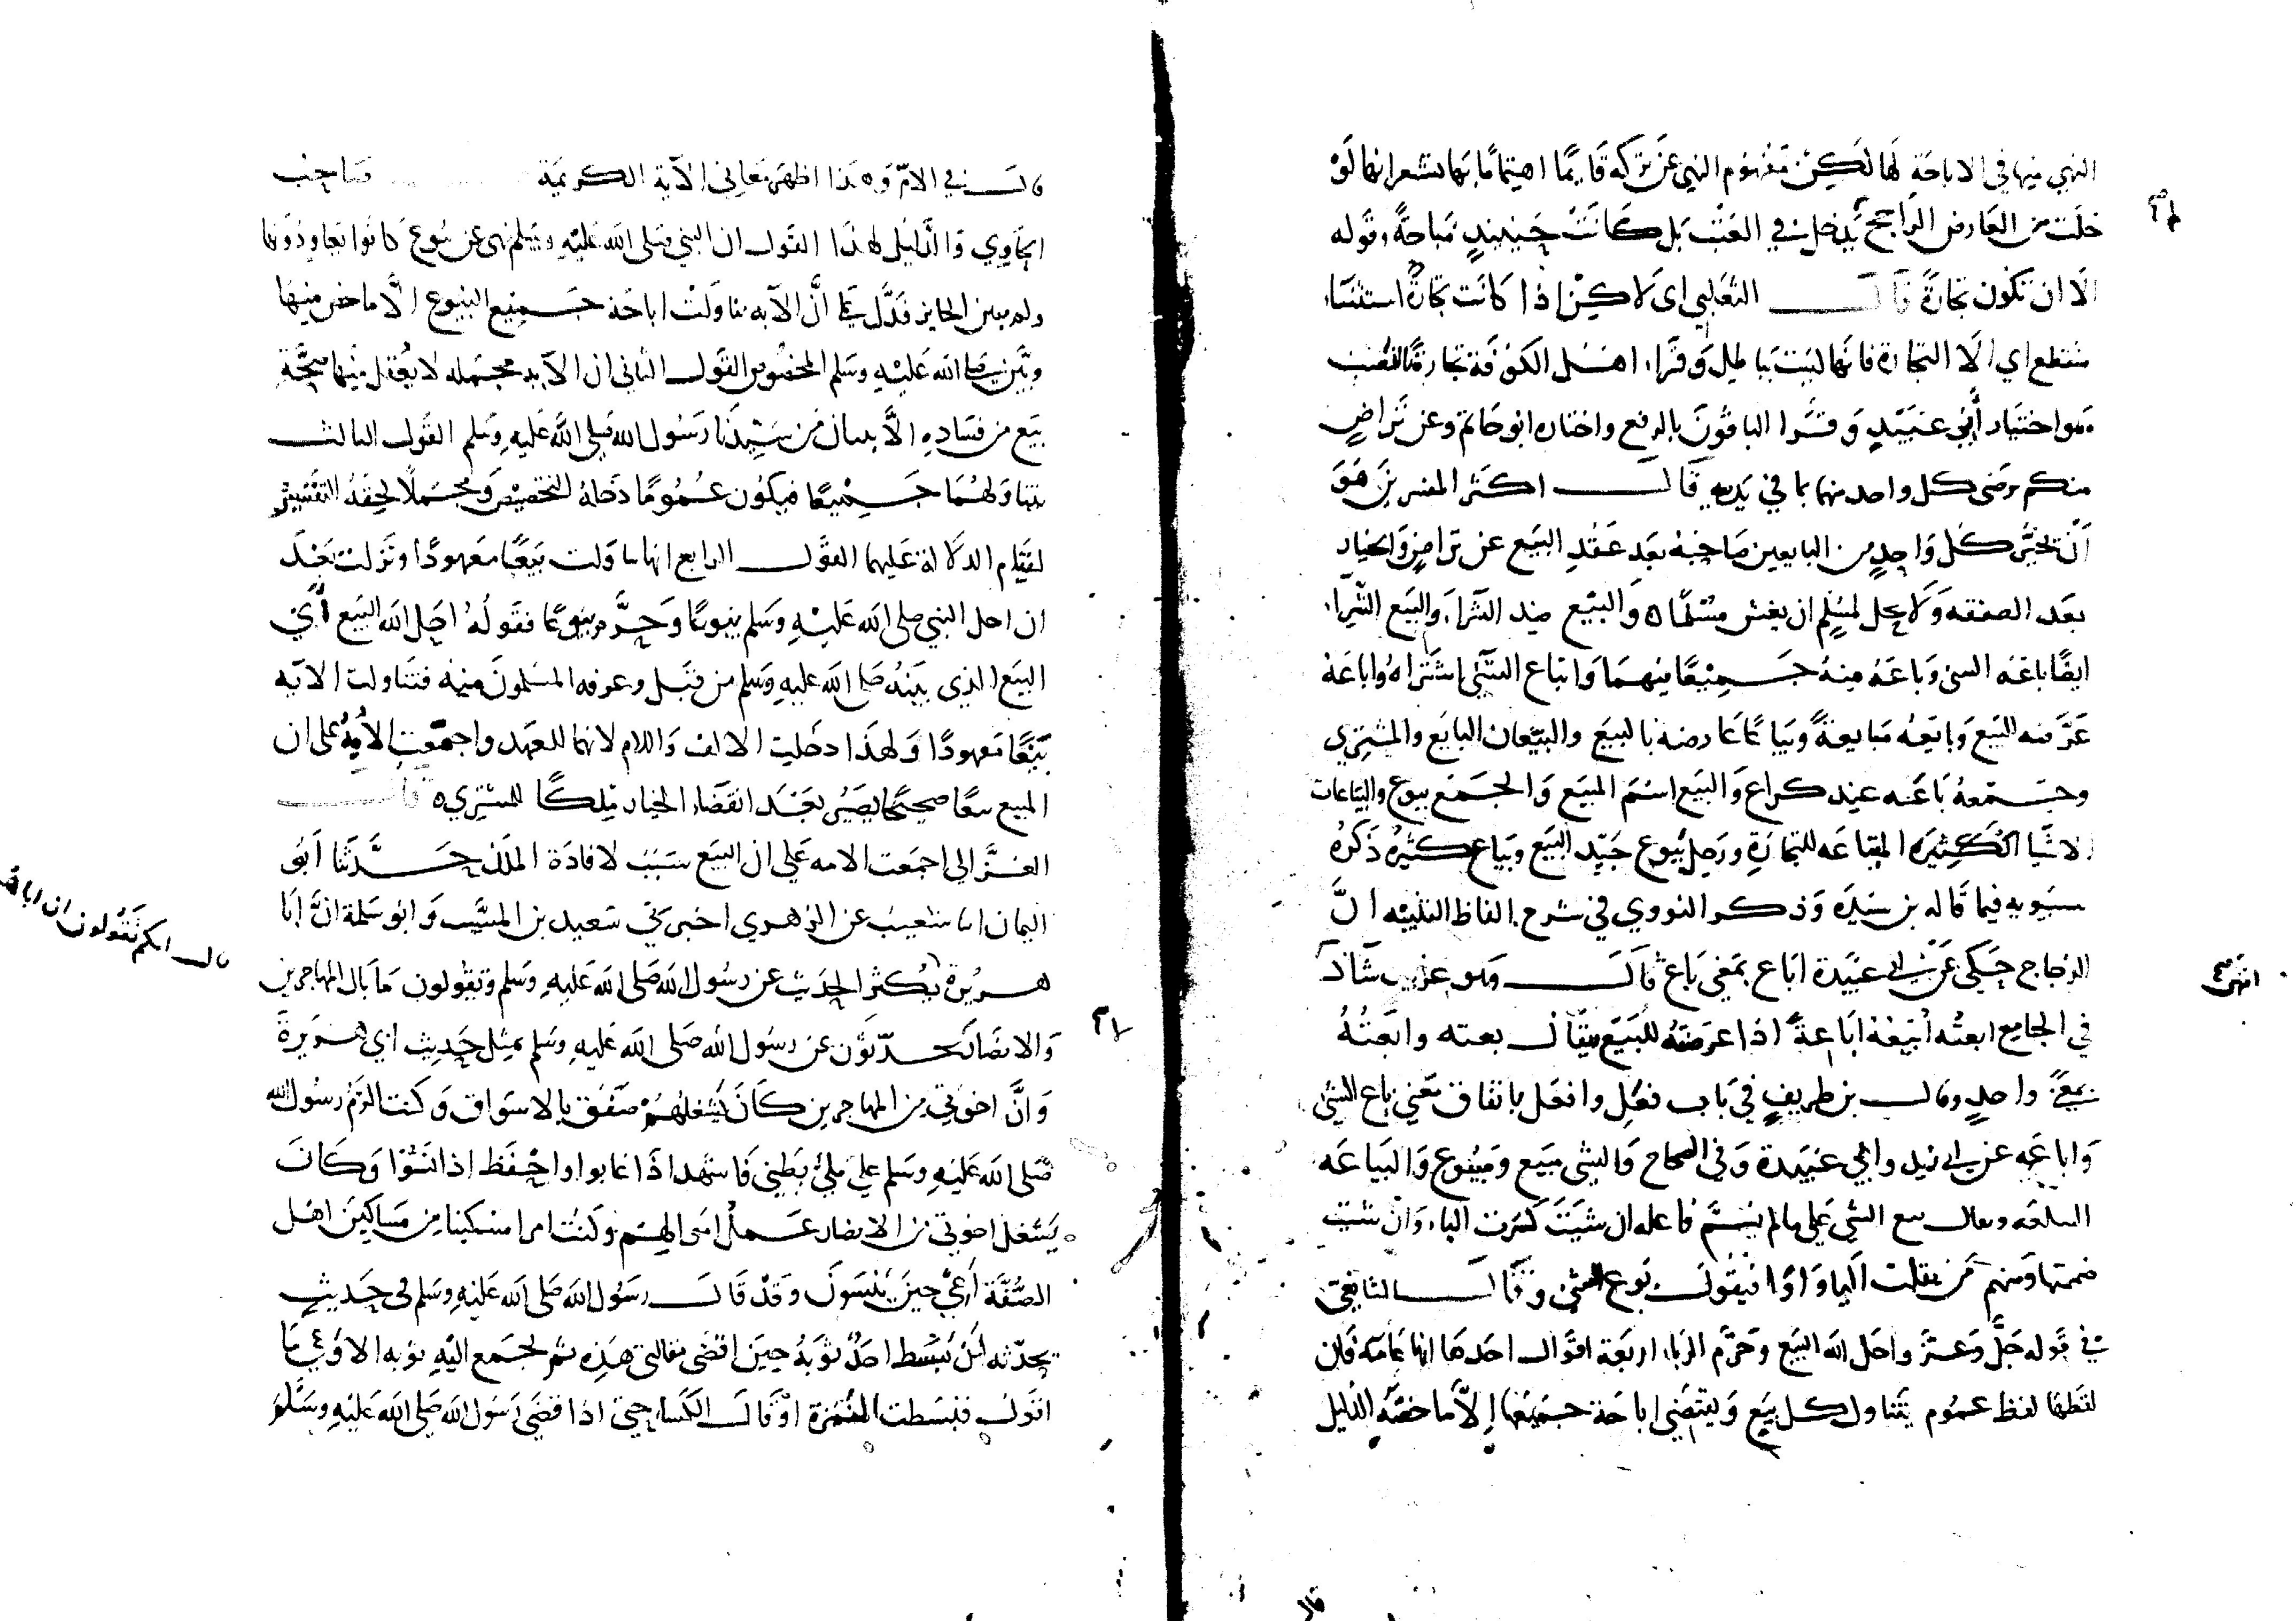 النهي منها في الاباحة لها لكن مفهوم النهي عن تركه قايما اهتماما بها تشعر انها لو
خلت من العارض الراجح يدخل في العتب بل كانت حينيذ مباحة وقوله
الا ان تكون تجارة قال الثعلبي اى لاكن اذا كانت تجارة استثناء
منقطع اي الا التجارة فانها ليست بباطل وقراء اهل الكوفة تجارة بالنصب
وهوا ختيار أبي عبيد وقرا الباقون بالرفع واختاره ابو حاتم وعن تراض
منكم يرضى كل واحد منهما بما في يديه قال اكثر المفسرين هو
أن يخير كل واحد من البايعين صاحبه بعد عقد البيع عن تراض والخيار
بعد الصفقه ولا يحل لمسلم ان يغش مسلما ٥ والبيع ضد الشراء والبيع الشراء
ايضا باعه الشى وباعه منه جميعا منهما وابتاع الشئ اشتراه واباعه
عرضه للبيع وبايعه مبايعة وبياعا عارضه بالبيع والبيعان البايع والمشتري
وجمعه باعه عند كراع والبيع اسم المبيع والجمع بيوع والبياعات
الاشيا الكثيره المبتاعه للتجارة ورجل بيوع جيد البيع وبياع كثيره ذكره
سيبويه فيما قاله بن سيده وذكر النووي في شرح الفاظ التنبيه ان
الزجاج حكى عن ابي عبيدة اباع بمعنى باع قال وهو غريب شاذ
انتهى
في الجامع ابعته أبيعه اباعة اذا عرضته للبيع ويقال بعته وابعته
بمعنى واحد وقال بن طريف في باب فعل وافعل باتفاق معنى باع الشئ
واباعه عن ابي زيد وابي عبيدة وفي الصحاح والشى مبيع ومبيوع والبياعه
السلعه ويقال بيع الشي على ما لم يسم فاعله ان شيت كسرت الباء وان شيت
ضممتها ومنهم من يقلب اليا واوا فيقول بوع الشي وقال الشافعى
في قوله جل وعز واحل الله البيع وحرم الربا اربعة اقوال احدها انها عامة فان
لفظها لفظ عموم يتناول كل بيع ويقتضي اباحة جميعها إلا ما خصه الدليل
قال في الام وهذا اظهر معاني الآية الكريمة صاحب
الحاوي والدليل لهذا القول ان النبي صلى الله عليه وسلم نهى عن بيوع كانوا يعاودونها
ولم يبين الجايز فدل على أن الآيه تناولت اباحة جميع البيوع الا ما خص منها
وبين صلى الله عليه وسلم المخصوص القول الثاني ان الآية مجمله لا يعقل منها صحة
بيع من فساده الا ببيان من سيدنا رسول الله صلى الله عليه وسلم القول الثالث
يتناولهما جميعا فيكون عموما دخله التخصيص ومجملا لحقه التفسير
لقيام الدلالة عليهما القول الرابع انها تناولت بيعا معهودا ونزلت بعد
ان احل النبي صلى الله عليه وسلم بيوعا وحرم بيوعا فقوله احل الله البيع أي
البيع الذي بينه صلى الله عليه وسلم من قبل وعرفه المسلمون منه فتناولت الايه
بيعا معهودا ولهذا دخلت الالف واللام لانها للعهد واجمعت الأمة على ان
المبيع بيعا صحيحا يصير بعد انقضاء الخيار ملكا للمشتري ٥ قال
الغزالي اجمعت الامه على ان البيع سبب لافادة الملك حدثنا أبو
اليمان انا شعيب عن الزهري اخبرني سعيد بن المسيب وابو سلمة ان ابا
قال انكم تقولون ان ابا
هريرة يكثر الحديث عن رسول الله صلى الله عليه وسلم وتقولون ما بال المهاجرين
والانصار لا يحدثون عن رسول الله صلى الله عليه وسلم بمثل حديث ابي هريرة
وان اخوتي من المهاجرين كان يشغلهم صفق بالاسواق وكنت الزم رسول الله
صلى الله عليه وسلم على ملئ بطني فاشهد اذا غابوا واحفظ اذا نسوا وكان
يشغل اخوتي من الانصار عمل اموالهم وكنت امرا مسكينا من مساكين اهل
الصفة أعي حين ينسون وقد قال رسول الله صلى الله عليه وسلم في حديث
يحدثه لن يبسط احد ثوبه حين اقضى مقالتى هذه ثم يجمع اليه ثوبه الا وعى ما
اقول فبسطت نمرة او قال الكسا حتى اذا قضى رسول الله صلى الله عليه وسلم